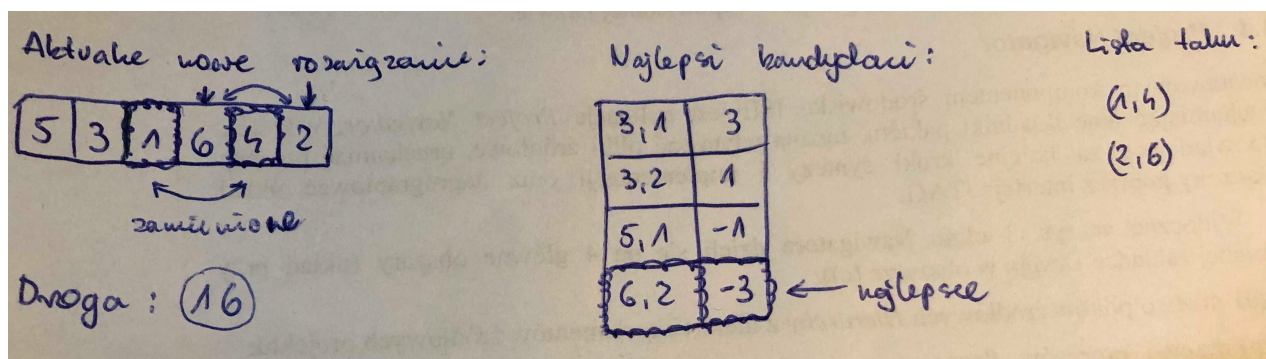 Aktualne nowe rozwiązanie:
5 3 1 6 4 2
zamienione
Droga: 16
Najlepsi kandydaci:
3,1 3
3,2 1
5,1 -1
6,2 -3
najlepsze
Lista tabu:
(1,4)
(2,6)